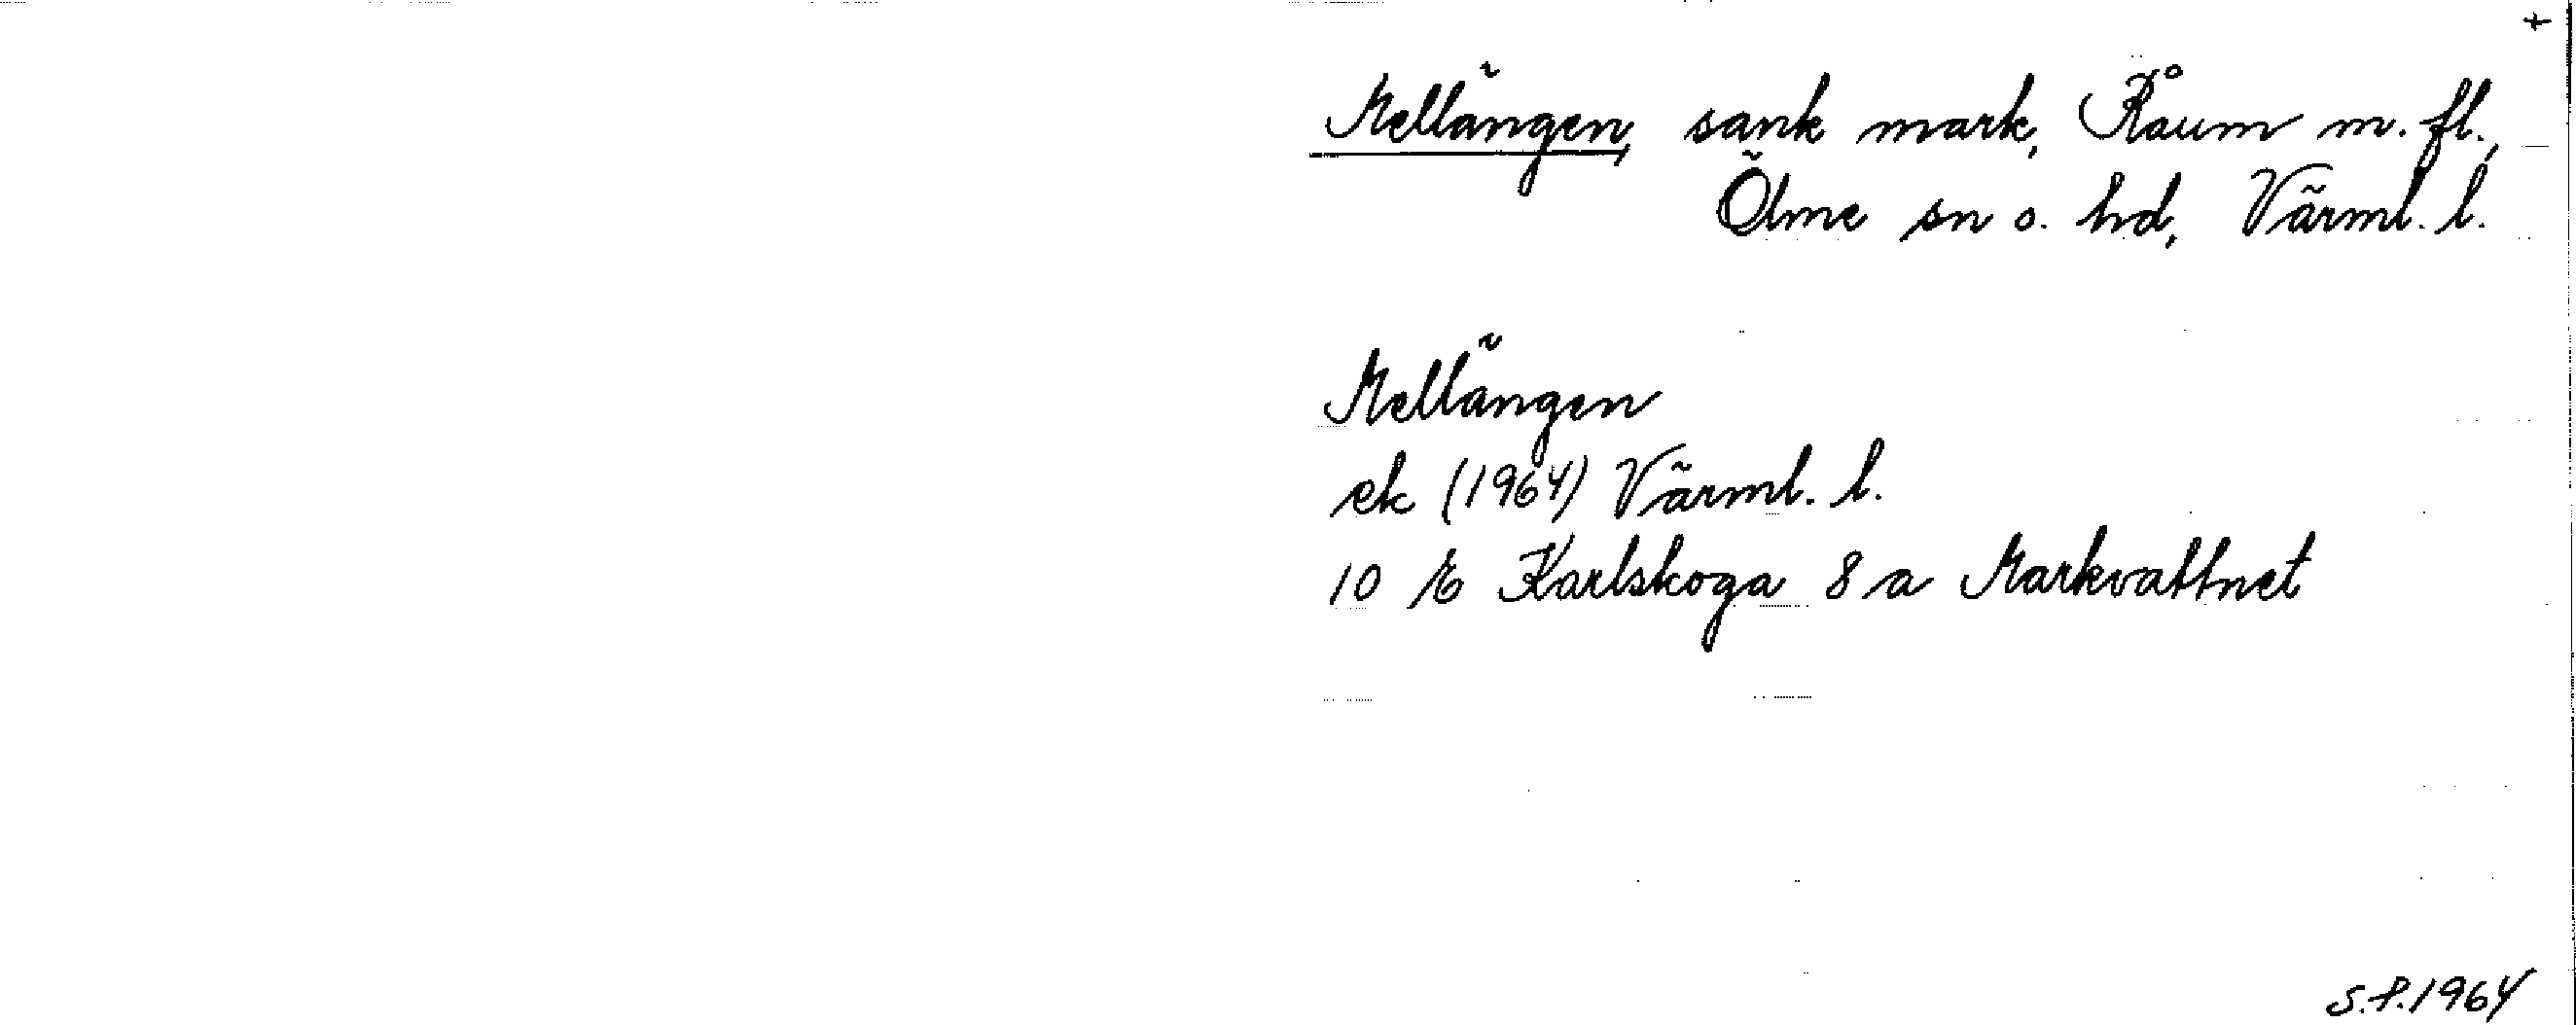 +
Mellängen, sank mark, Råum m. fl.,
Ölme sn o. hd, Värml. l.
Mellängen
ek (1964) Värml. l.
10 E Karlskoga 8 a Markvattnet
S.P.1964